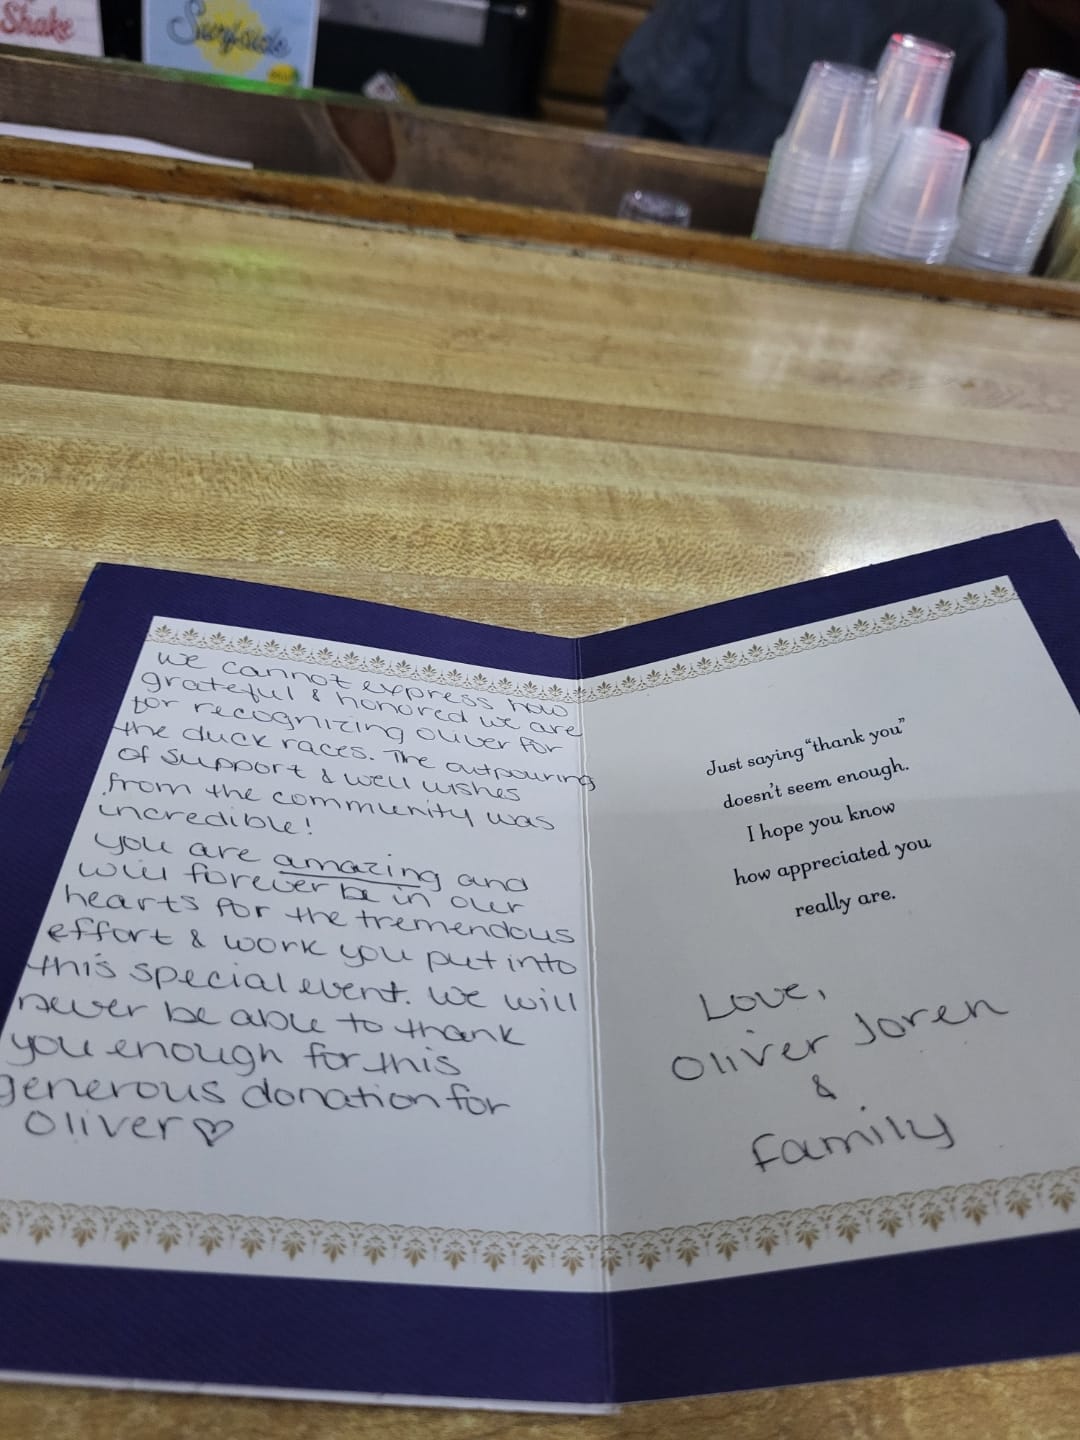 Shake
Surfside
we cannot express how
grateful & honored we are
for recognizing Oliver for
the duck races. The outpouring
of support & well wishes
from the community was
incredible!
You are amazing and
will forever be in our
hearts for the tremendous
effort & work you put into
this special event. We will
never be able to thank
you enough for this
generous donation for
Oliver ♡
Just saying “thank you”
doesn't seem enough.
I hope you know
how appreciated you
really are.
Love,
Oliver Joren
&
Family